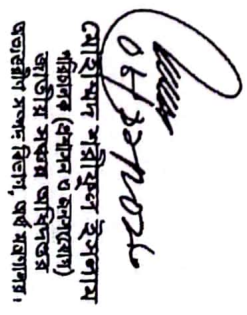 মোহাম্মদ শরীফুল ইসলাম
পরিচালক (প্রশাসন ও জনসংযোগ)
জাতীয় সঞ্চয় অধিদপ্তর
অভ্যন্তরীণ সম্পদ বিভাগ, অর্থ মন্ত্রণালয়।